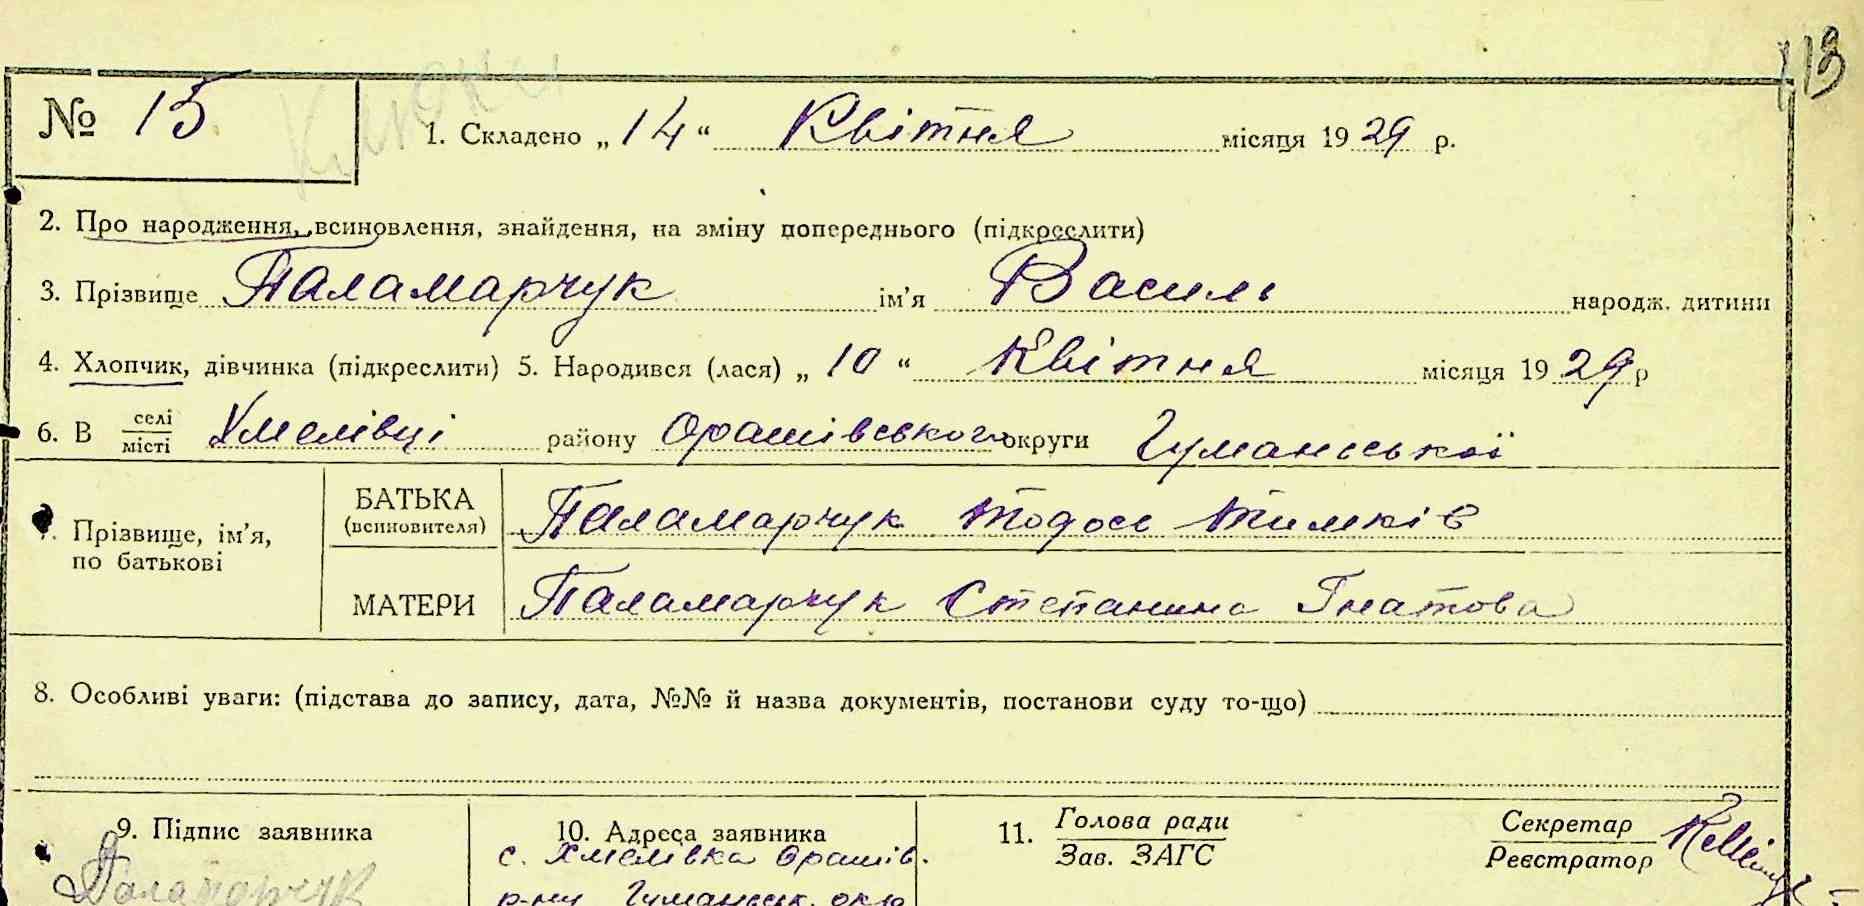 113
№ 15
1. Складено „14“ Квітня місяця 1929 р.
2. Про народження, всиновлення, знайдення, на зміну попереднього (підкреслити)
3. Прізвище Паламарчук ім’я Василь народж. дитини
4. Хлопчик, дівчинка (підкреслити) 5. Народився (лася) „10“ Квітня місяця 1929 р
6. В селі місті Хмелівці району Орашівського округи Гуманської
7. Прізвище, ім’я, по батькові
БАТЬКА (всиновителя) Паламарчук Тодось Тимків
МАТЕРИ Паламарчук Степанина Гнатова
8. Особливі уваги: (підстава до запису, дата, №№ й назва документів, постанови суду то-що)
9. Підпис заявника
Паламарчук
10. Адреса заявника
с. Хмелівка Орашів.
р-ну Гуманськ. окр
11. Голова ради
Зав. ЗАГС
Секретар
Реєстратор